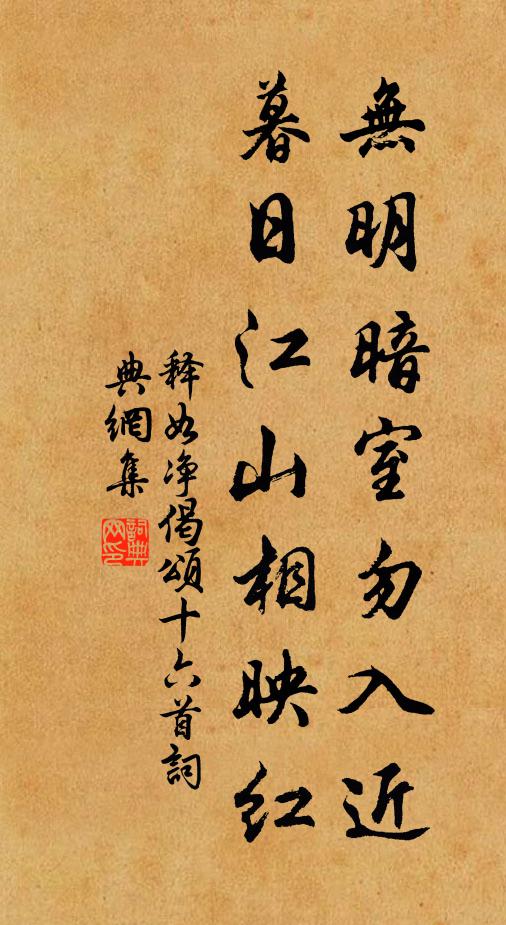 無明暗室勿入近
暮日江山相映紅
释如净偈頌十六首詞
典網集
詞典網印